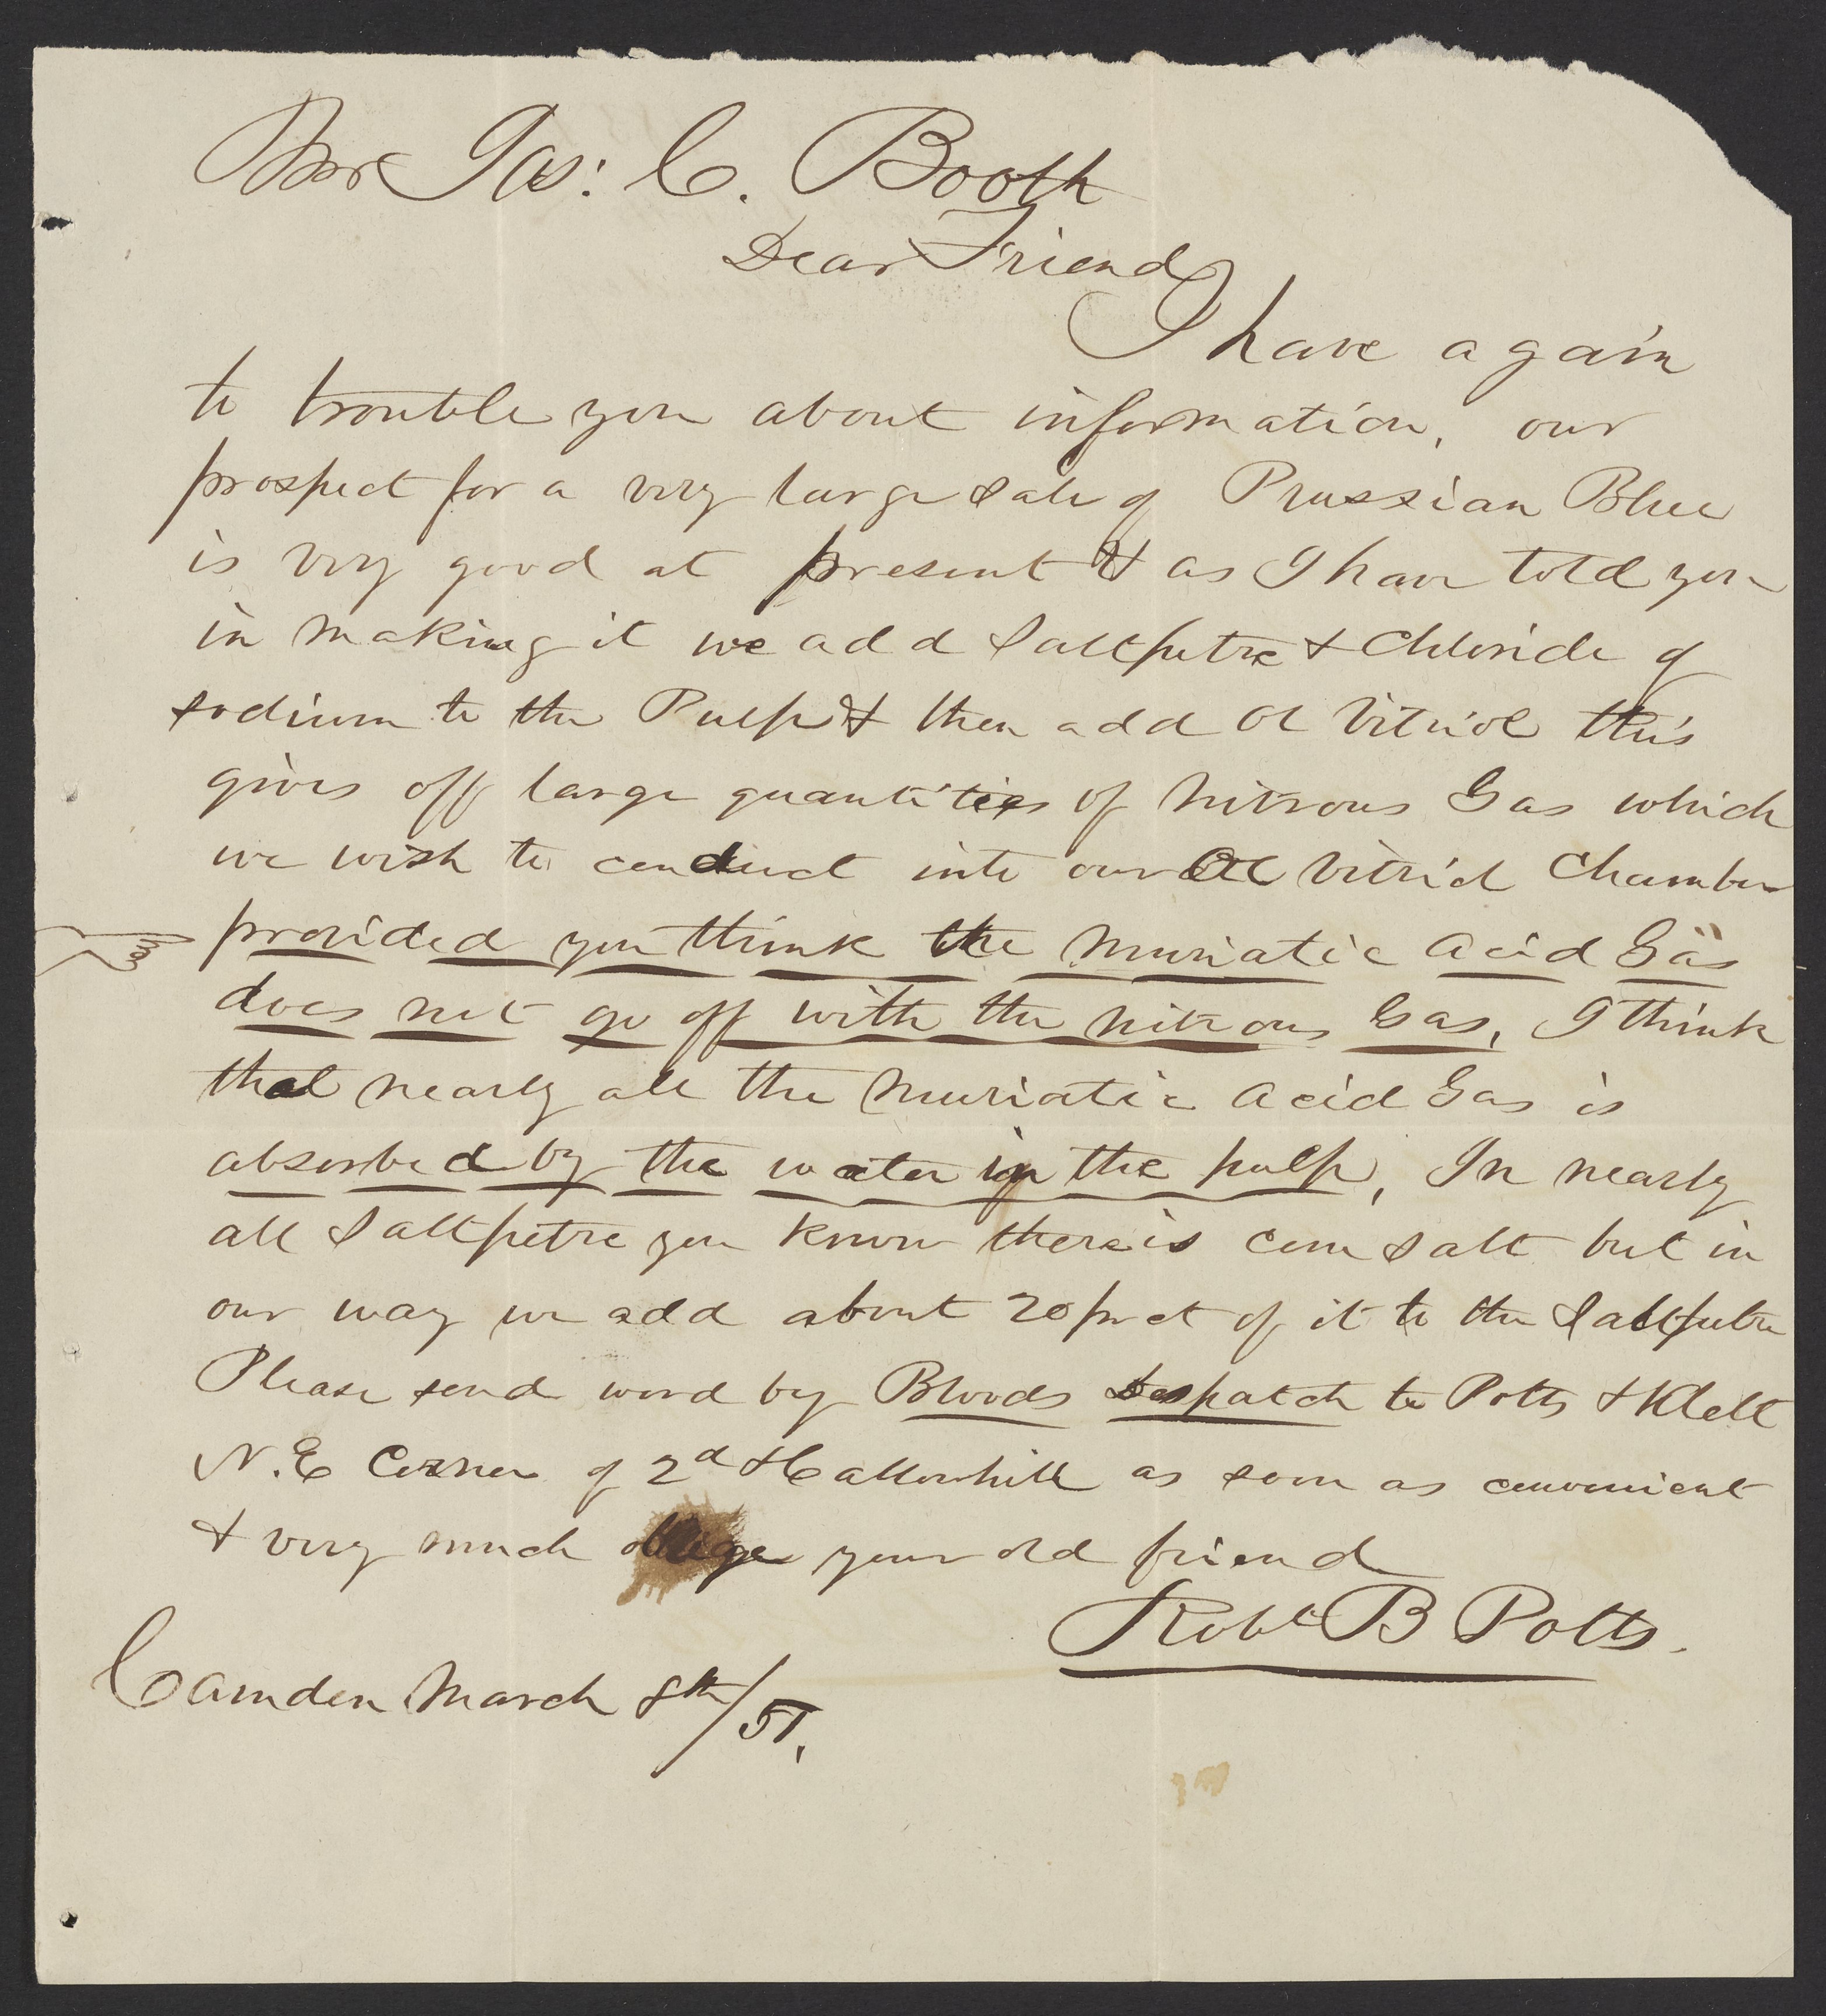 Mr Jas: C. Booth
Dear Friend
I have again
to trouble you about information, our
prospect for a very large sale of Prussian Blue
is very good at present & as I have told you
in making it we add Saltpetre & Chloride of
sodium to the Pulp & then add Ol Vitriol this
gives off large quantities of Nitrous Gas which
we wish to conduct into our Ol Vitriol Chamber
provided you think the Muriatic Acid Gas
does not go off with the Nitrous Gas, I think
that nearly all the Muriatic Acid Gas is
absorbed by the water in the pulp, In nearly
all Saltpetre you know there is com salt but in
our way we add about 20 pr ct of it to the Saltpetre
Please send word by Bloods Despatch to Potts & Klett
N.E Corner of 2d & Callowhill as soon as convenient
& very much oblige your old friend
Robt B Potts.
Camden March 8th/51,